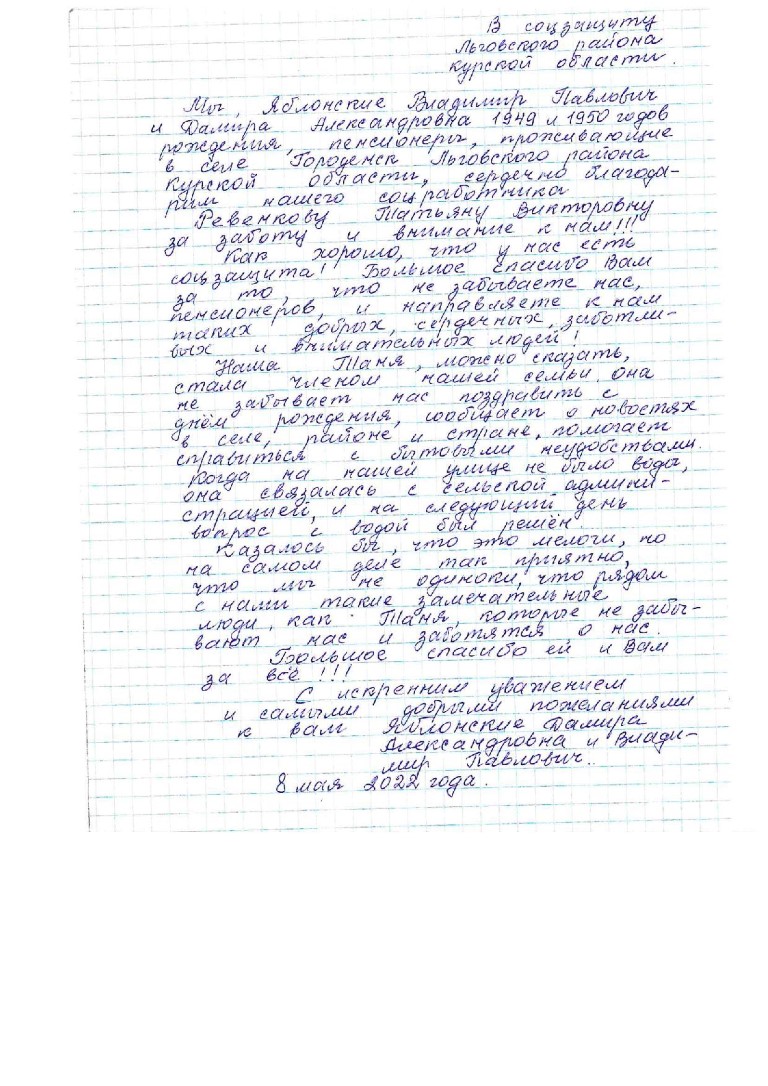 В соцзащиту
Льговского района
Курской области.
Мы, Яблонские Владимир Павлович
и Дамира Александровна 1949 и 1950 годов
рождения, пенсионеры, проживающие
в селе Городенск Льговского района
Курской области, сердечно благода-
рим нашего соцработника
Ревенкову Татьяну Викторовну
за заботу и внимание к нам!!!
Как хорошо, что у нас есть
соцзащита! Большое спасибо Вам
за то, что не забываете нас,
пенсионеров, и направляете к нам
таких добрых, сердечных, заботли-
вых и внимательных людей!
Наша Таня, можно сказать,
стала членом нашей семьи, она
не забывает нас поздравить с
днём рождения, сообщает о новостях
в селе, районе и стране, помогает
справиться с бытовыми неудобствами.
Когда на нашей улице не было воды,
она связалась с сельской админи-
страцией, и на следующий день
вопрос с водой был решён.
Казалось бы, что это мелочи, но
на самом деле так приятно,
что мы не одиноки, что рядом
с нами такие замечательные
люди, как Таня, которые не забы-
вают нас и заботятся о нас.
Большое спасибо ей и Вам
за всё!!!
С искренним уважением
и самыми добрыми пожеланиями
к вам Яблонские Дамира
Александровна и Влади-
мир Павлович.
8 мая 2022 года.